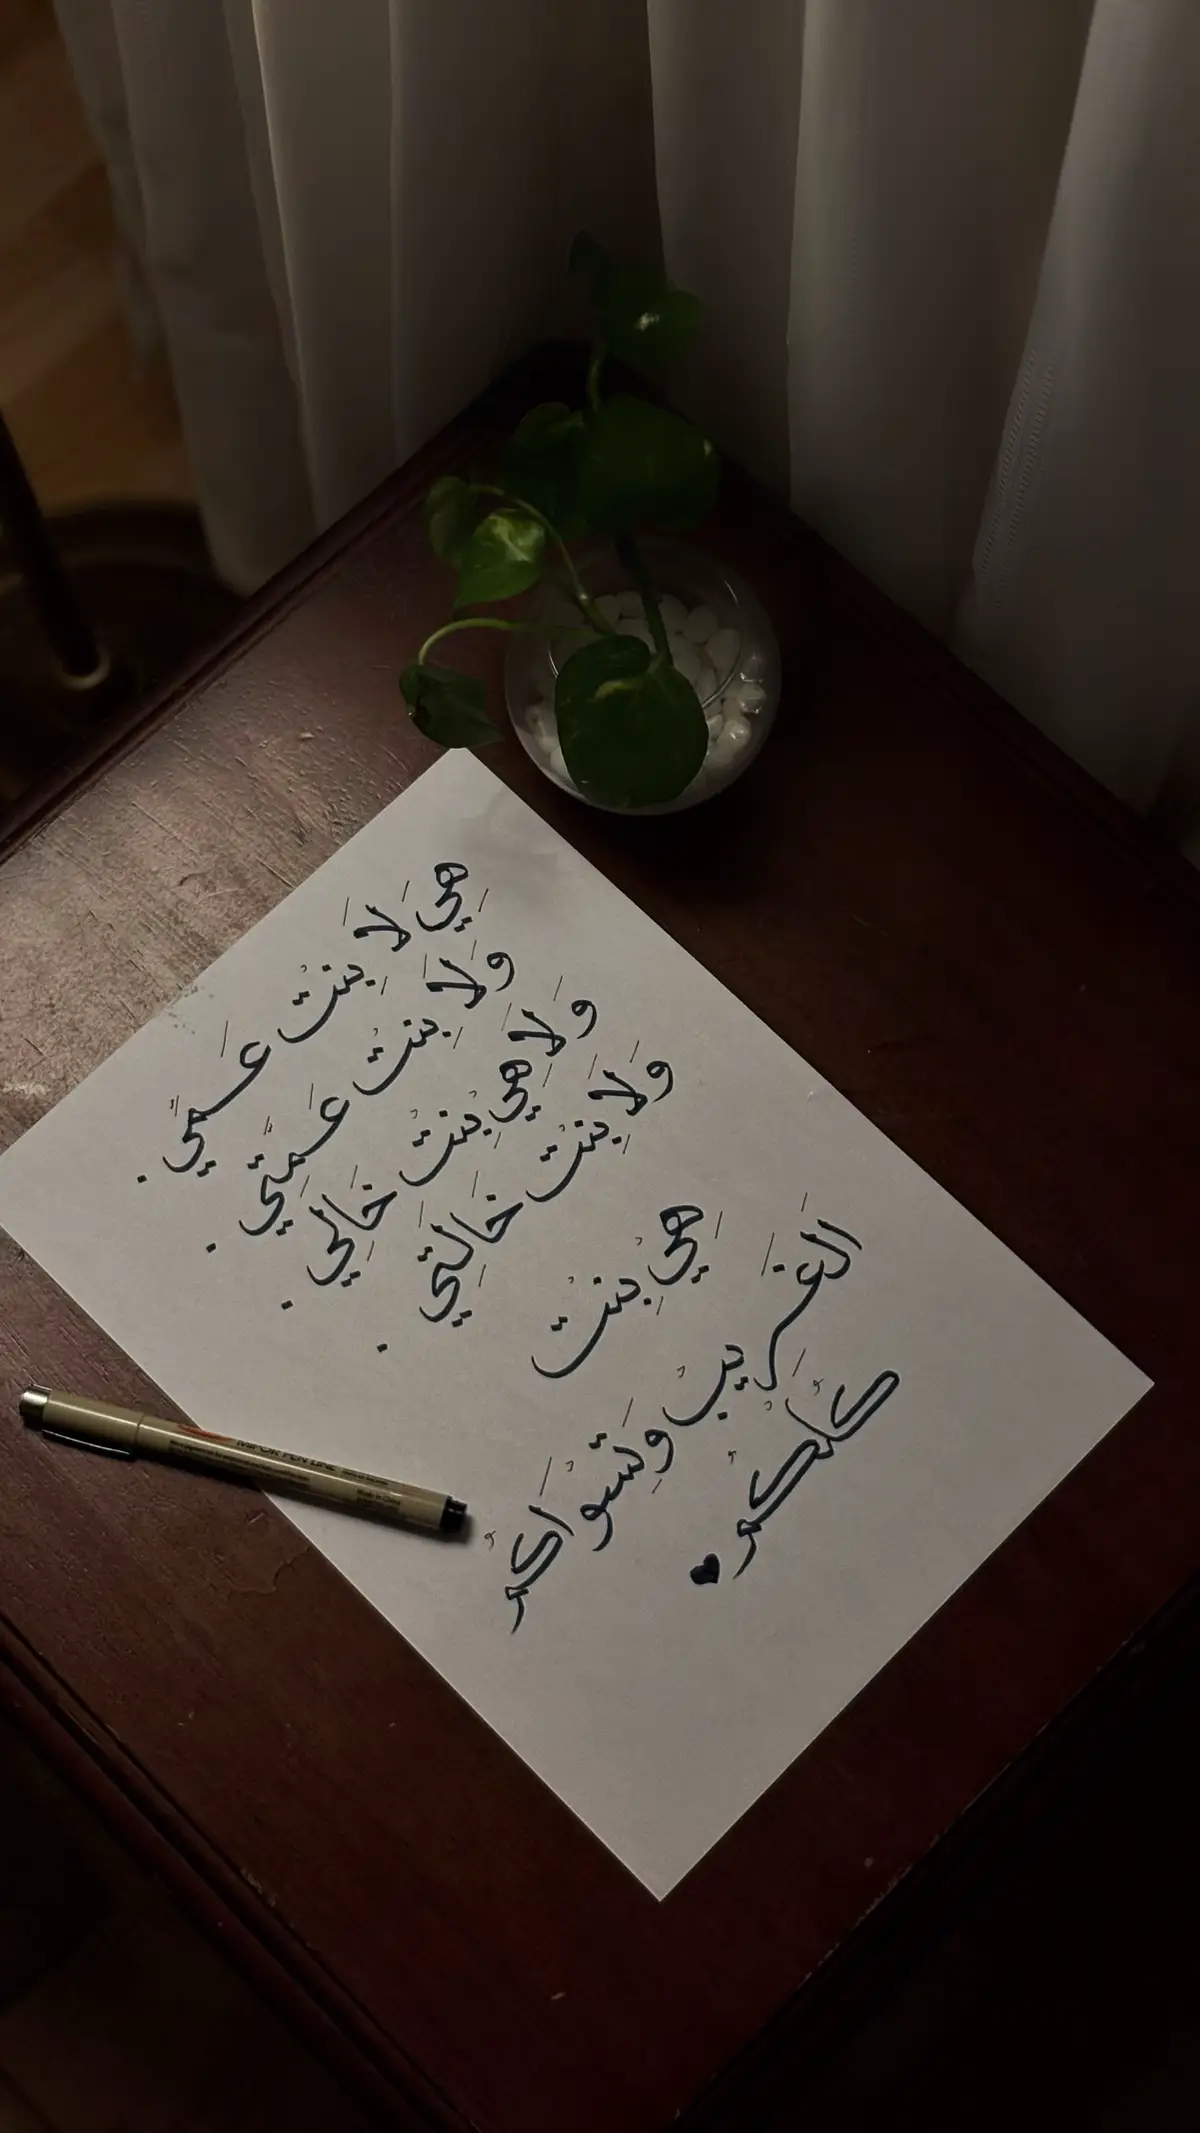 هِيَ لَا بِنْتْ عَمِّي .
وَلَا بِنْتْ عَمِّتِي .
وَلَا هِيَ بِنْتْ خَالِي .
وَلَا بِنْتْ خَالَتِي .
هِيَ بِنْتْ
الغَرِيبْ وِتِسْوَاكُمْ
كُلْكُمْ